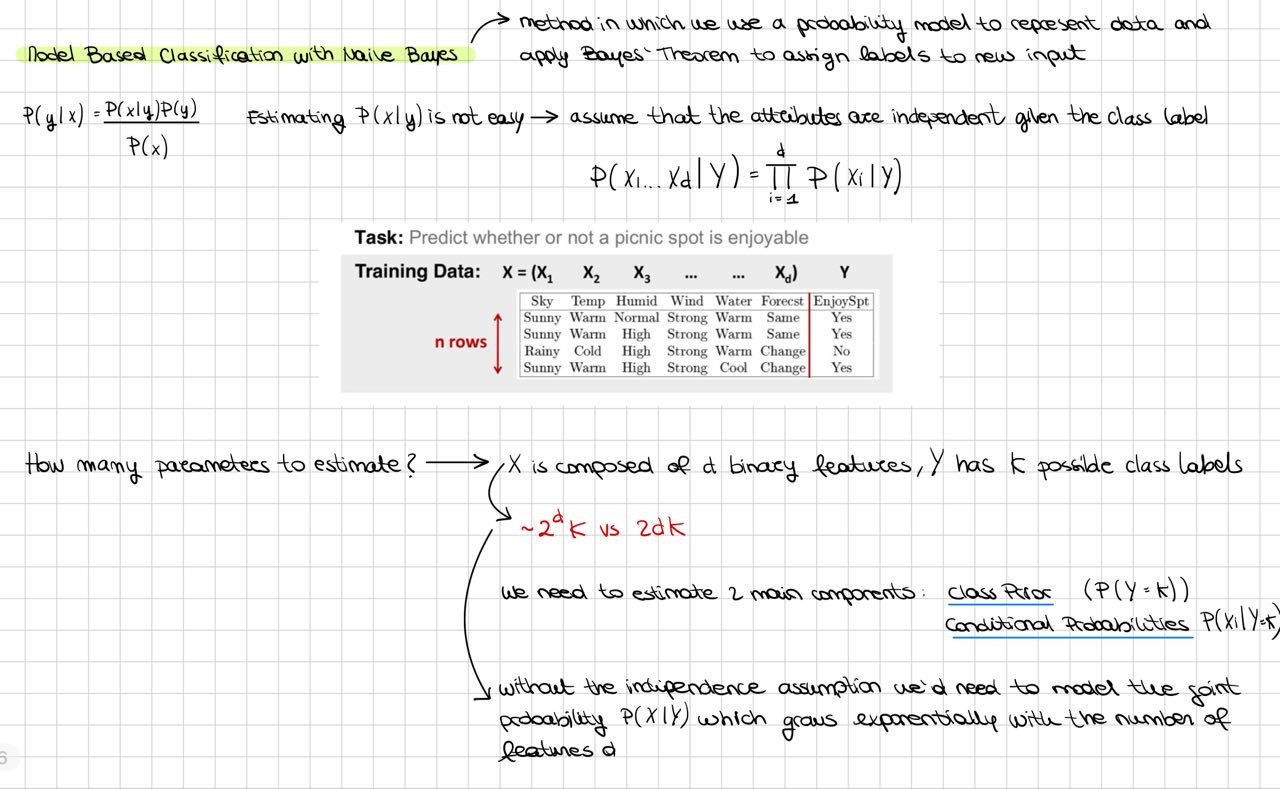 method in which we use a probability model to represent data and
Model Based Classification with Naive Bayes
apply Bayes' Theorem to assign labels to new input
P(y|x) = P(x|y)P(y) / P(x)
Estimating P(x|y) is not easy → assume that the attributes are independent given the class label
P(X1... Xd|Y) = ∏ i=1 d P(Xi|Y)
Task: Predict whether or not a picnic spot is enjoyable
Training Data: X = (X1 X2 X3 ... ... Xd) Y
Sky Temp Humid Wind Water Forecst EnjoySpt
Sunny Warm Normal Strong Warm Same Yes
Sunny Warm High Strong Warm Same Yes
n rows
Rainy Cold High Strong Warm Change No
Sunny Warm High Strong Cool Change Yes
How many parameters to estimate? → X is composed of d binary features, Y has K possible class labels
~2^d K vs 2dK
We need to estimate 2 main components: Class Prior (P(Y=k))
Conditional Probabilities P(Xi|Y=k)
without the indipendence assumption we'd need to model the joint
probability P(X|Y) which grows exponentially with the number of
features d
6